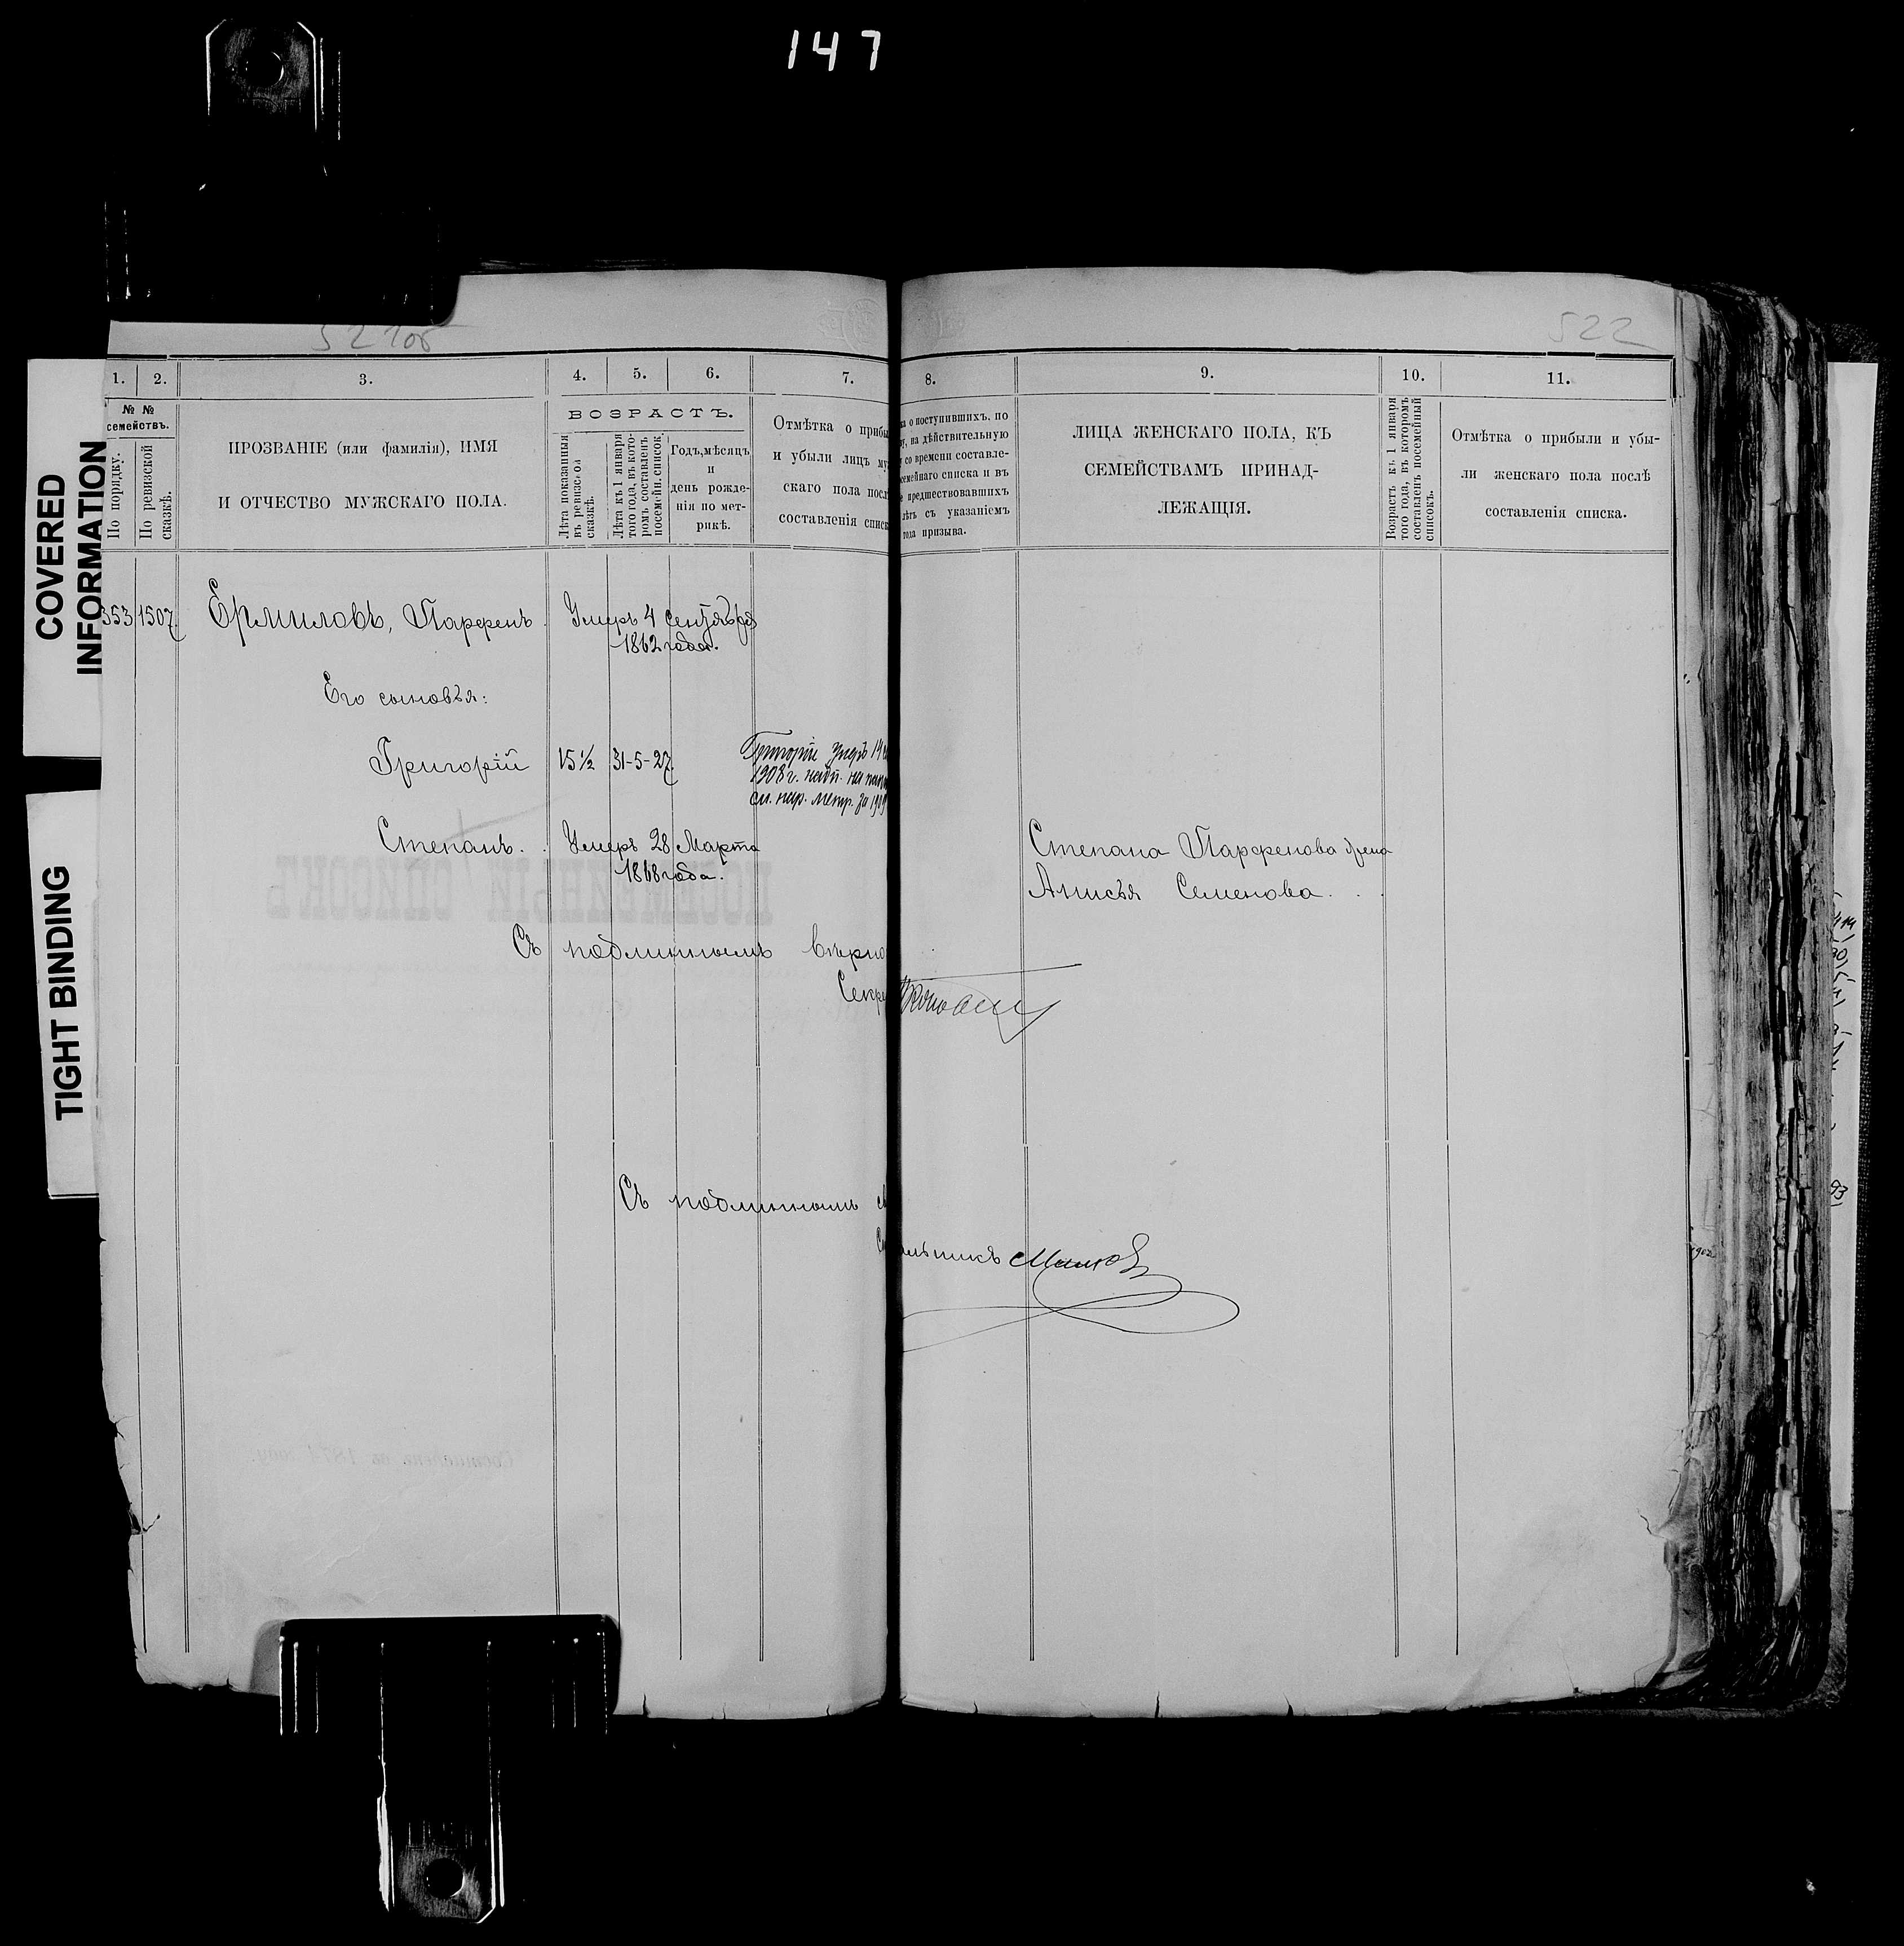 147
COVERED
INFORMATION
TIGHT BINDING
522
1.
2.
3.
4.
5.
6.
7.
8.
9.
10.
11.
№ №
семействъ.
По порядку.
По ревизской
сказкѣ.
ПРОЗВАНІЕ (или фамилія), ИМЯ
И ОТЧЕСТВО МУЖСКАГО ПОЛА.
ВОЗРАСТЪ.
Лѣта показанныя
въ ревизской
сказкѣ.
Лѣта къ 1 января
того года, въ кото-
ромъ составленъ
посемейн. списокъ.
Годъ, мѣсяцъ
и
день рожде-
нія по мет-
рикѣ.
Отмѣтка о прибы
и убыли лицъ му
скаго пола посл
составленія списк
а о поступившихъ, по
у, на дѣйствительную
со времени составле-
семейнаго списка и въ
предшествовавшихъ
лѣтъ съ указаніемъ
года призыва.
ЛИЦА ЖЕНСКАГО ПОЛА, КЪ
СЕМЕЙСТВАМЪ ПРИНАД-
ЛЕЖАЩІЯ.
Возрастъ къ 1 января
того года, въ которомъ
составленъ посемейный
списокъ.
Отмѣтка о прибыли и убы-
ли женскаго пола послѣ
составленія списка.
353 1507 Ермиловъ, Парфенъ. Умеръ 4 Сентября
1862 года.
Его сыновья:
Григорій 15½ 31-5-27 Григорій умеръ 19
1908 г.
см. нар. метр. за 1909
Степанъ. . Умеръ 28 Марта
1868 года.
Степана Парфенова жена
Анисья Семенова. . .
Съ подлиннымъ вѣрно
Секре
Съ подлиннымъ с
альникъ